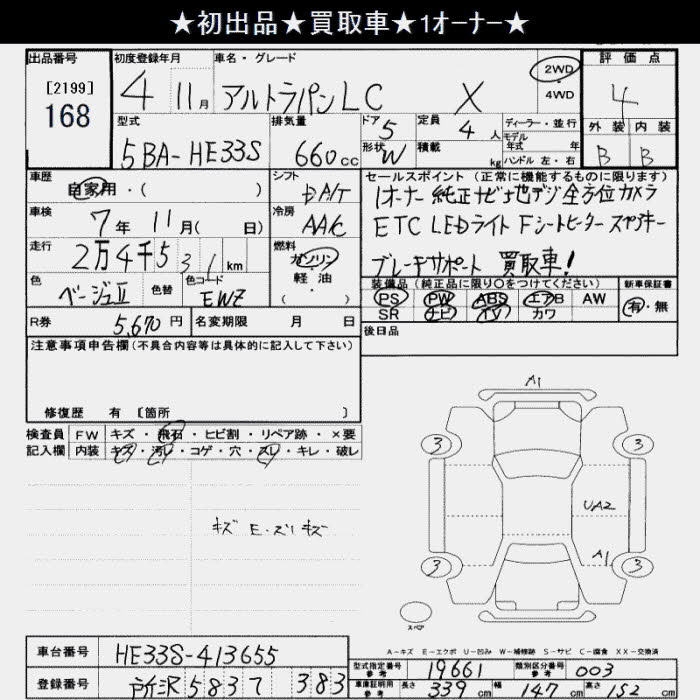 ★初出品★買取車★1オーナー★
出品番号 初度登録年月 車名・グレード 2WD 評価点
[2199] 4 11月 アルトラパンLC X ・ 4WD 4
168
型式 排気量 ドア 5 定員 4人 ディーラー・並行 外装 内装
モデル年式 年
5BA-HE33S 660cc 形状 W 積載 kg ハンドル 左・右 B B
車歴 自家用・( ) シフト DA/T セールスポイント (正常に機能するものに限ります)
車検 7年 11月( 日) 冷房 AA/C 1オーナー 純正ナビ 地デジ 全方位カメラ
ETC LEDライト Fシートヒーター スペアキー
走行 2万4千531km 燃料 ガソリン・軽油・( ) ブレーキサポート 買取車!
色 ベージュII 色替 色コード EWZ 装備品 (純正品に限り○をつけてください) 新車保証書
PS PW ABS エアB AW 有・無
SR ナビ TV カワ
R券 5,670円 名変期限 月 日 後日品
注意事項申告欄(不具合内容等は具体的に記入して下さい)
修復歴 有 [箇所 ]
検査員 FW キズ・飛石・ヒビ割・リペア跡・×要
記入欄 内装 キズ・汚レ・コゲ・穴・スレ・キレ・破レ
A1
3 3
UA2
キズ E・ズリキズ
A1
3 3
スペア
A-キズ E-エクボ U-凹み W-補修跡 S-サビ C-腐食 XX-交換済
車台番号 HE33S-413655
型式指定番号 参考 19661 類別区分番号 参考 003
登録番号 所沢 583ワ 383
車庫証明用 参考 長さ 339cm 幅 147cm 高さ 152cm